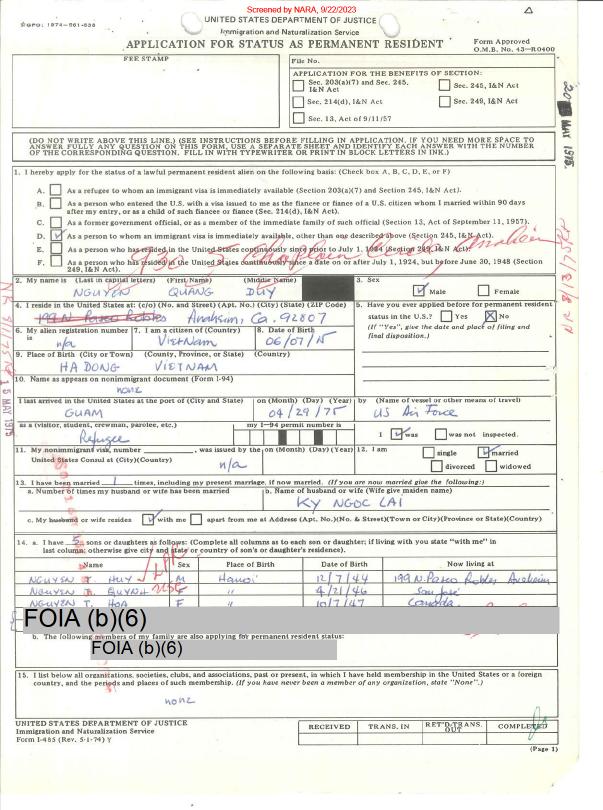 Screened by NARA, 9/22/2023
GPO: 1974-561-538
UNITED STATES DEPARTMENT OF JUSTICE
Immigration and Naturalization Service
APPLICATION FOR STATUS AS PERMANENT RESIDENT
Form Approved
O.M.B. No. 43-R0400
FEE STAMP
File No.
APPLICATION FOR THE BENEFITS OF SECTION:
Sec. 203(a)(7) and Sec. 245, I&N Act
Sec. 245, I&N Act
Sec. 214(d), I&N Act
Sec. 249, I&N Act
Sec. 13, Act of 9/11/57
20 MAY 1975
(DO NOT WRITE ABOVE THIS LINE.) (SEE INSTRUCTIONS BEFORE FILLING IN APPLICATION. IF YOU NEED MORE SPACE TO
ANSWER FULLY ANY QUESTION ON THIS FORM, USE A SEPARATE SHEET AND IDENTIFY EACH ANSWER WITH THE NUMBER
OF THE CORRESPONDING QUESTION. FILL IN WITH TYPEWRITER OR PRINT IN BLOCK LETTERS IN INK.)
1. I hereby apply for the status of a lawful permanent resident alien on the following basis: (Check box A, B, C, D, E, or F)
A. As a refugee to whom an immigrant visa is immediately available (Section 203(a)(7) and Section 245, I&N Act).
B. As a person who entered the U.S. with a visa issued to me as the fiancee or fiance of a U.S. citizen whom I married within 90 days
after my entry, or as a child of such fiancee or fiance (Sec. 214(d), I&N Act).
C. As a former government official, or as a member of the immediate family of such official (Section 13, Act of September 11, 1957).
D. As a person to whom an immigrant visa is immediately available, other than one described above (Section 245, I&N Act).
E. As a person who has resided in the United States continuously since prior to July 1, 1924 (Section 249, I&N Act).
F. As a person who has resided in the United States continuously since a date on or after July 1, 1924, but before June 30, 1948 (Section
249, I&N Act).
2. My name is (Last in capital letters) (First Name) (Middle Name)
NGUYEN QUANG DUY
3. Sex
Male Female
4. I reside in the United States at: (c/o) (No. and Street) (Apt. No.) (City) (State) (ZIP Code)
199 N Paseo Robles Anaheim, Ca. 92807
5. Have you ever applied before for permanent resident
status in the U.S.? Yes No
(If "Yes", give the date and place of filing and
final disposition.)
6. My alien registration number is
n/a
7. I am a citizen of (Country)
VietNam
8. Date of Birth
06/07/15
9. Place of Birth (City or Town) (County, Province, or State) (Country)
HA DONG VIETNAM
10. Name as appears on nonimmigrant document (Form I-94)
none
I last arrived in the United States at the port of (City and State)
GUAM
on (Month) (Day) (Year)
04/29/75
by (Name of vessel or other means of travel)
US Air Force
as a (visitor, student, crewman, parolee, etc.)
Refugee
my I-94 permit number is
I was was not inspected.
11. My nonimmigrant visa, number, was issued by the
United States Consul at (City) (Country)
on (Month) (Day) (Year)
n/a
12. I am
single married
divorced widowed
13. I have been married 1 times, including my present marriage, if now married. (If you are now married give the following:)
a. Number of times my husband or wife has been married
b. Name of husband or wife (Wife give maiden name)
KY NGOC LAI
c. My husband or wife resides with me apart from me at Address (Apt. No.) (No. & Street) (Town or City) (Province or State) (Country)
14. a. I have 5 sons or daughters as follows: (Complete all columns as to each son or daughter; if living with you state "with me" in
last column; otherwise give city and state or country of son's or daughter's residence).
Name Sex Place of Birth Date of Birth Now living at
NGUYEN T. HUY M Hanoi 12/7/44 199 N. Paseo Robles Anaheim
NGUYEN T. QUYNH F " 4/21/46 San José
NGUYEN T. HOA F " 10/7/47 Canada
FOIA (b)(6)
b. The following members of my family are also applying for permanent resident status:
FOIA (b)(6)
15. I list below all organizations, societies, clubs, and associations, past or present, in which I have held membership in the United States or a foreign
country, and the periods and places of such membership. (If you have never been a member of any organization, state "None".)
none
UNITED STATES DEPARTMENT OF JUSTICE
Immigration and Naturalization Service
Form I-485 (Rev. 5-1-74) Y
RECEIVED
TRANS. IN
RET'D-TRANS. OUT
COMPLETED
(Page 1)